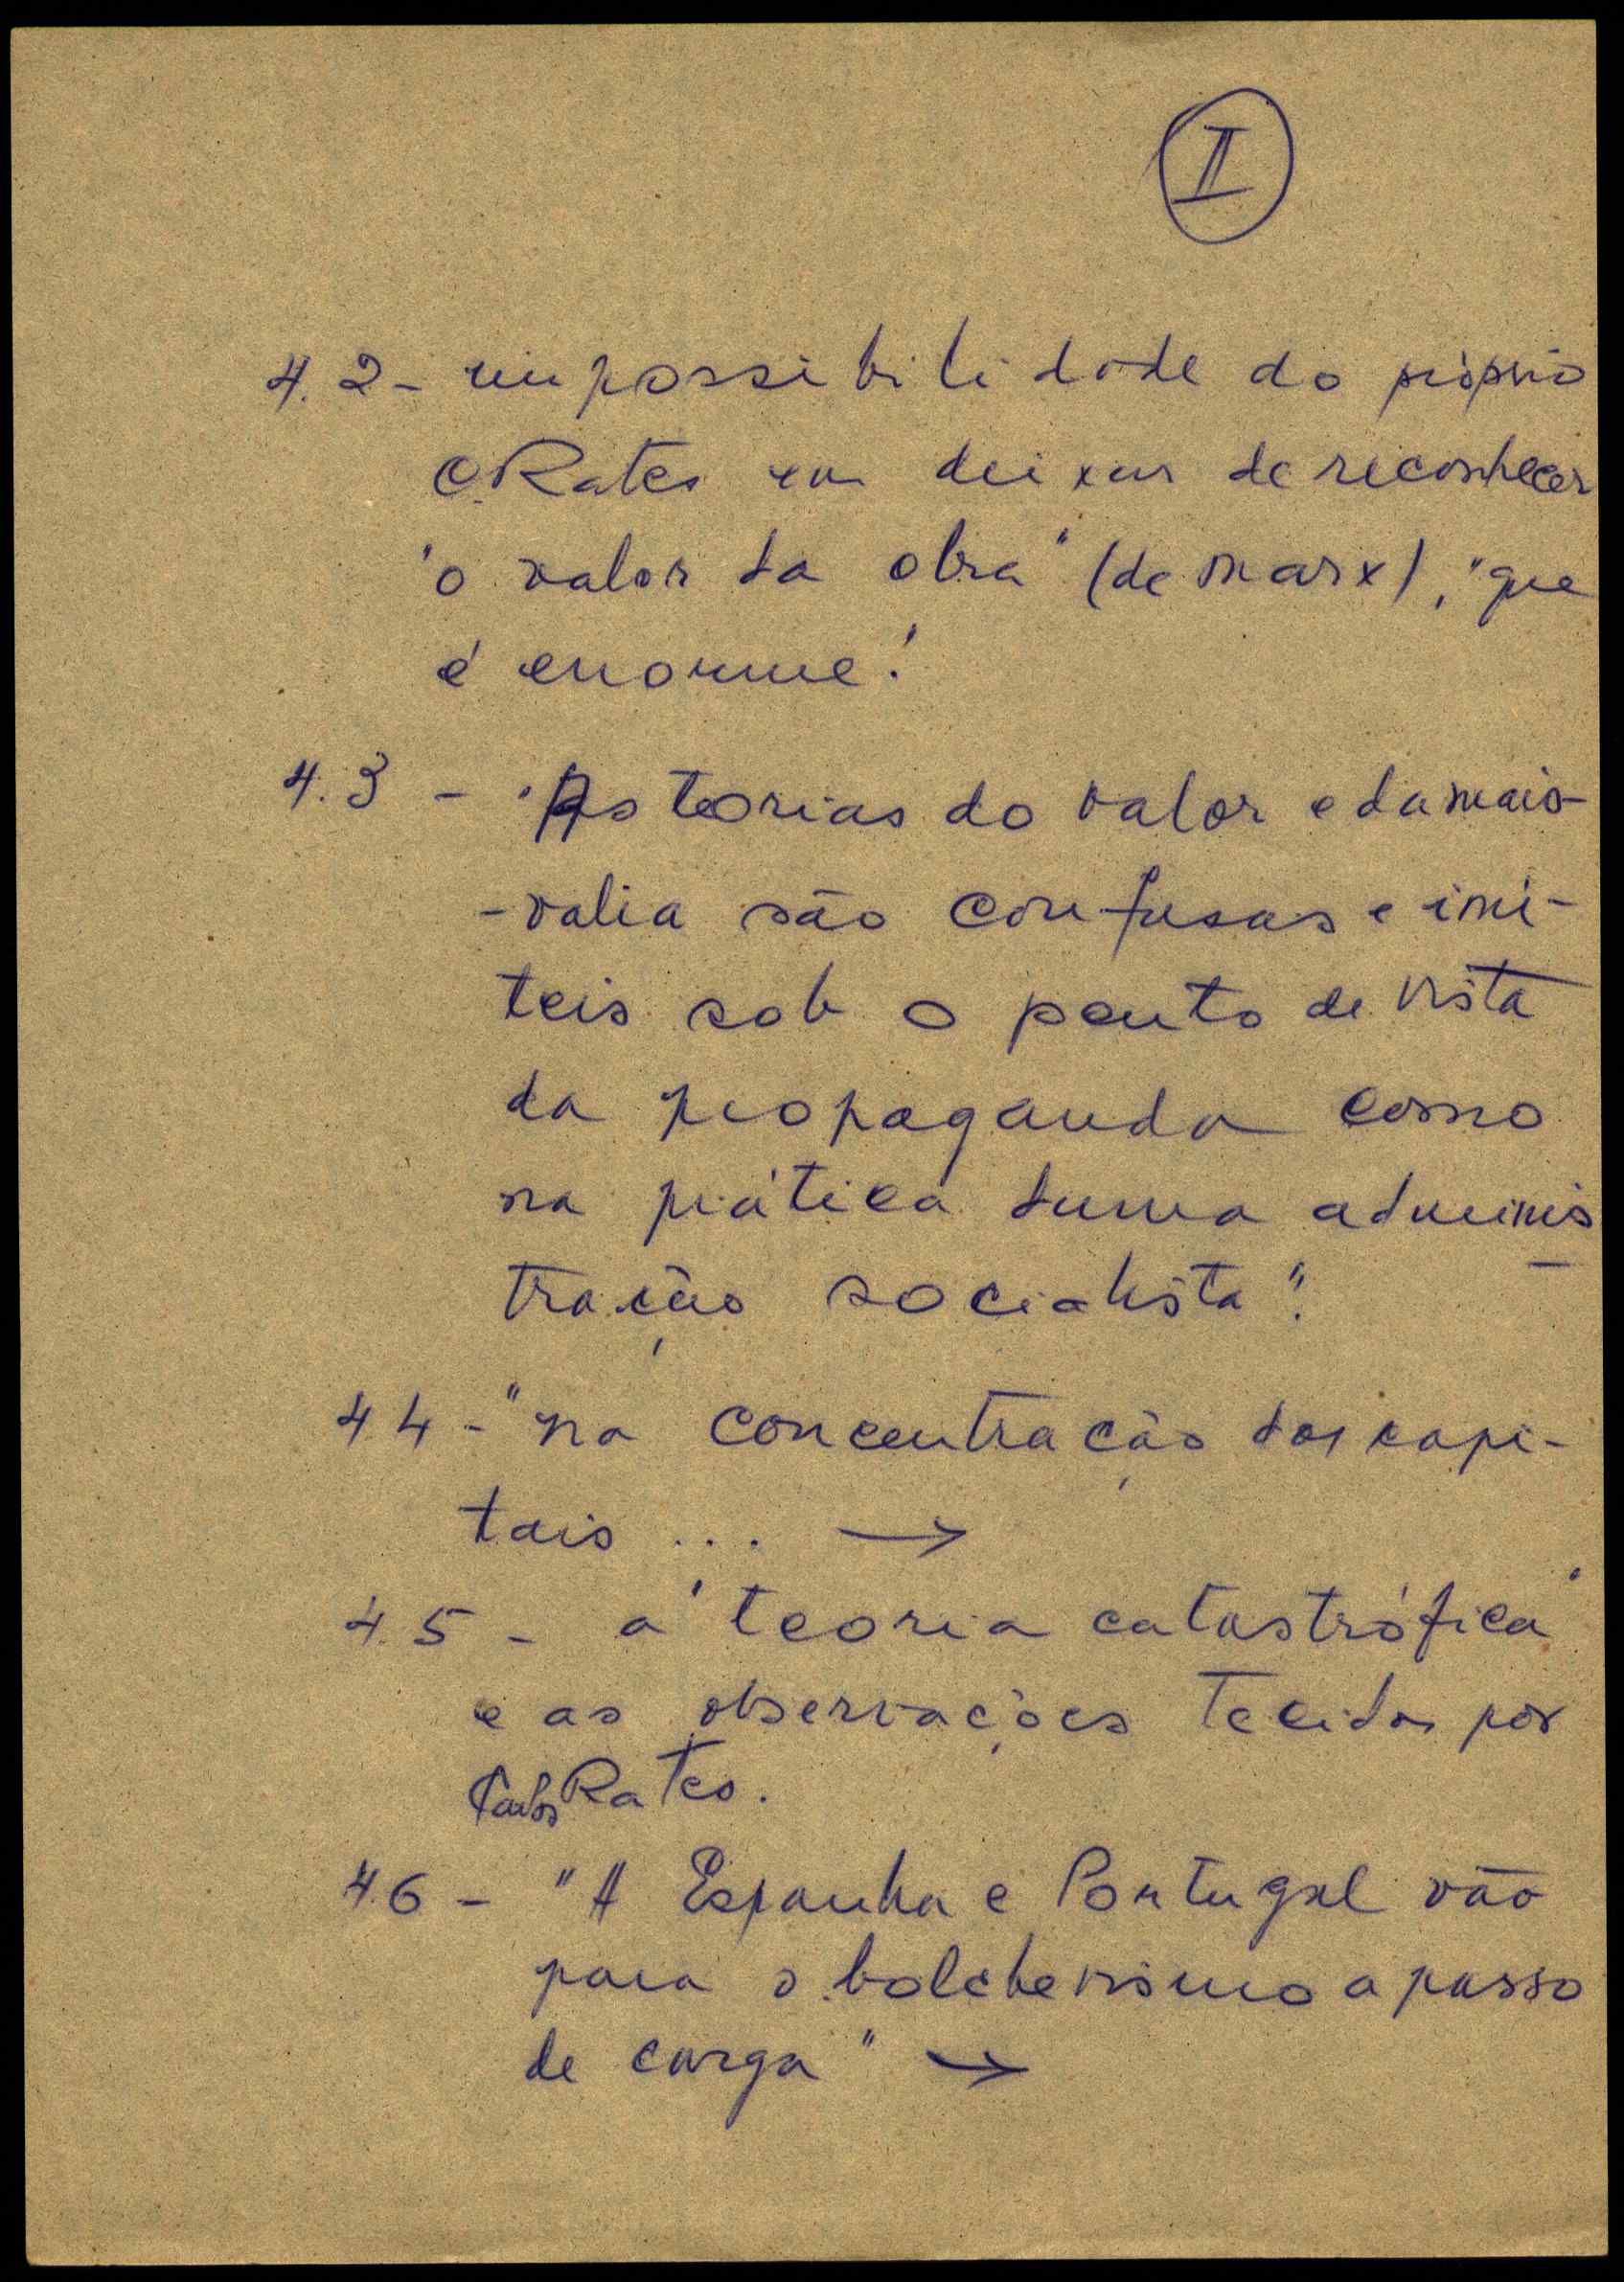 II
4.2 - impossibilidade do próprio
C. Rates em deixar de reconhecer
"o valor da obra" (de Marx), "que
é enorme".
4.3 - "As teorias do valor e da mais-
-valia são confusas e inú-
teis sob o ponto de vista
da propaganda como
na prática duma adminis
tração socialista".
4.4 - "na concentração dos capi-
tais ... →
4.5 - a "teoria catastrófica"
e as observações tecidas por
Carlos Rates.
4.6 - "A Espanha e Portugal vão
para o bolchevismo a passo
de carga" →